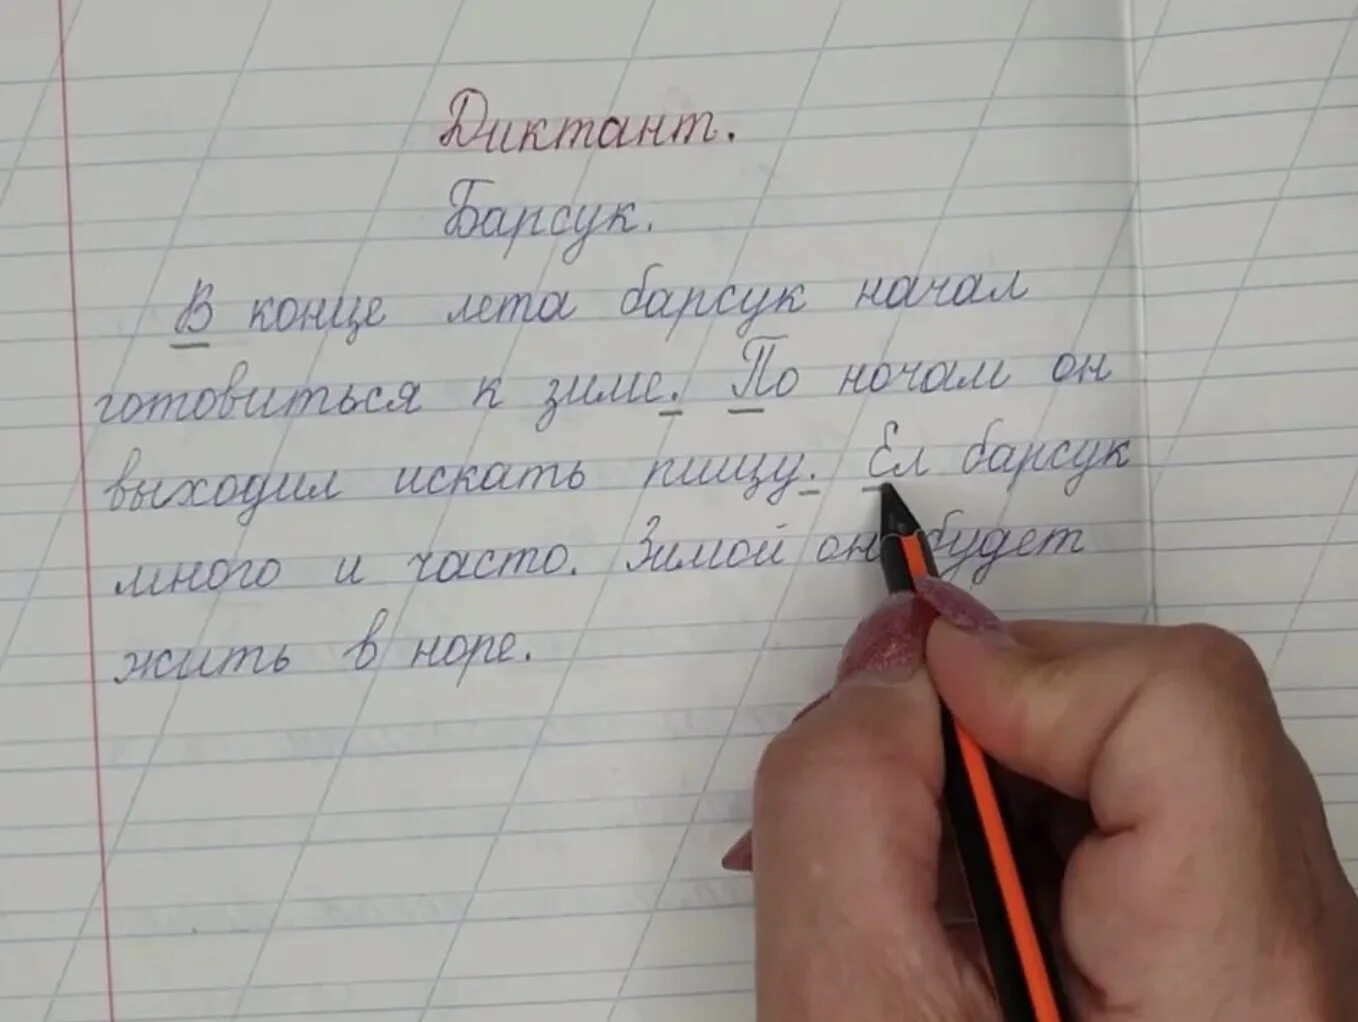 Диктант.
Барсук.
В конце лета барсук начал
готовиться к зиме. По ночам он
выходил искать пищу. Ел барсук
много и часто. Зимой он будет
жить в норе.